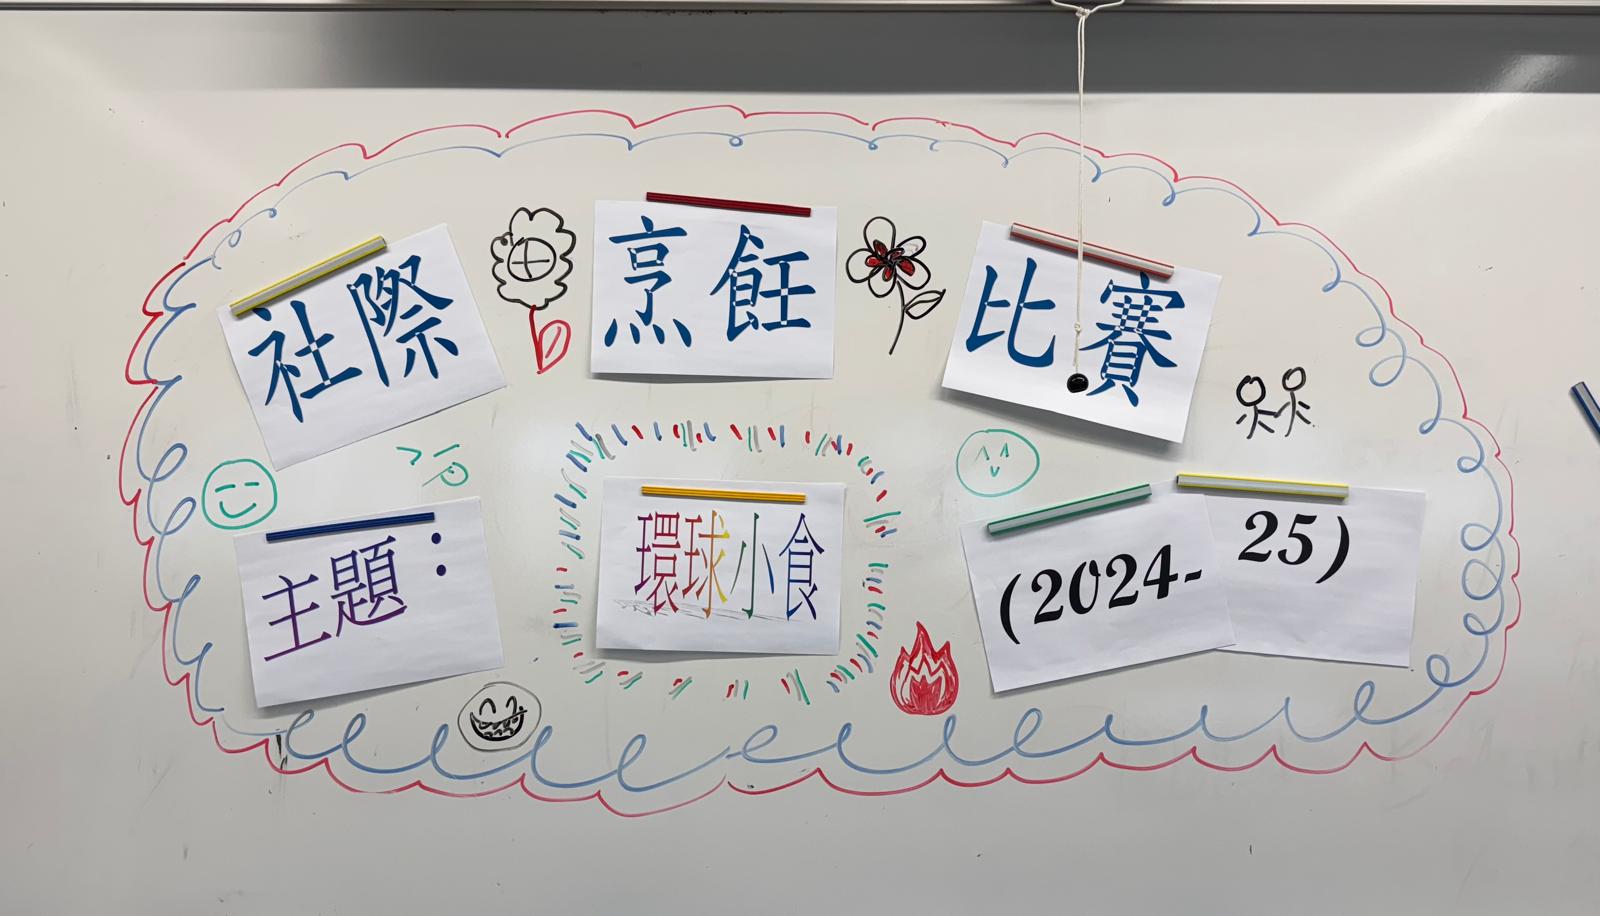 社際 烹飪 比賽
主題： 環球小食 (2024-25)